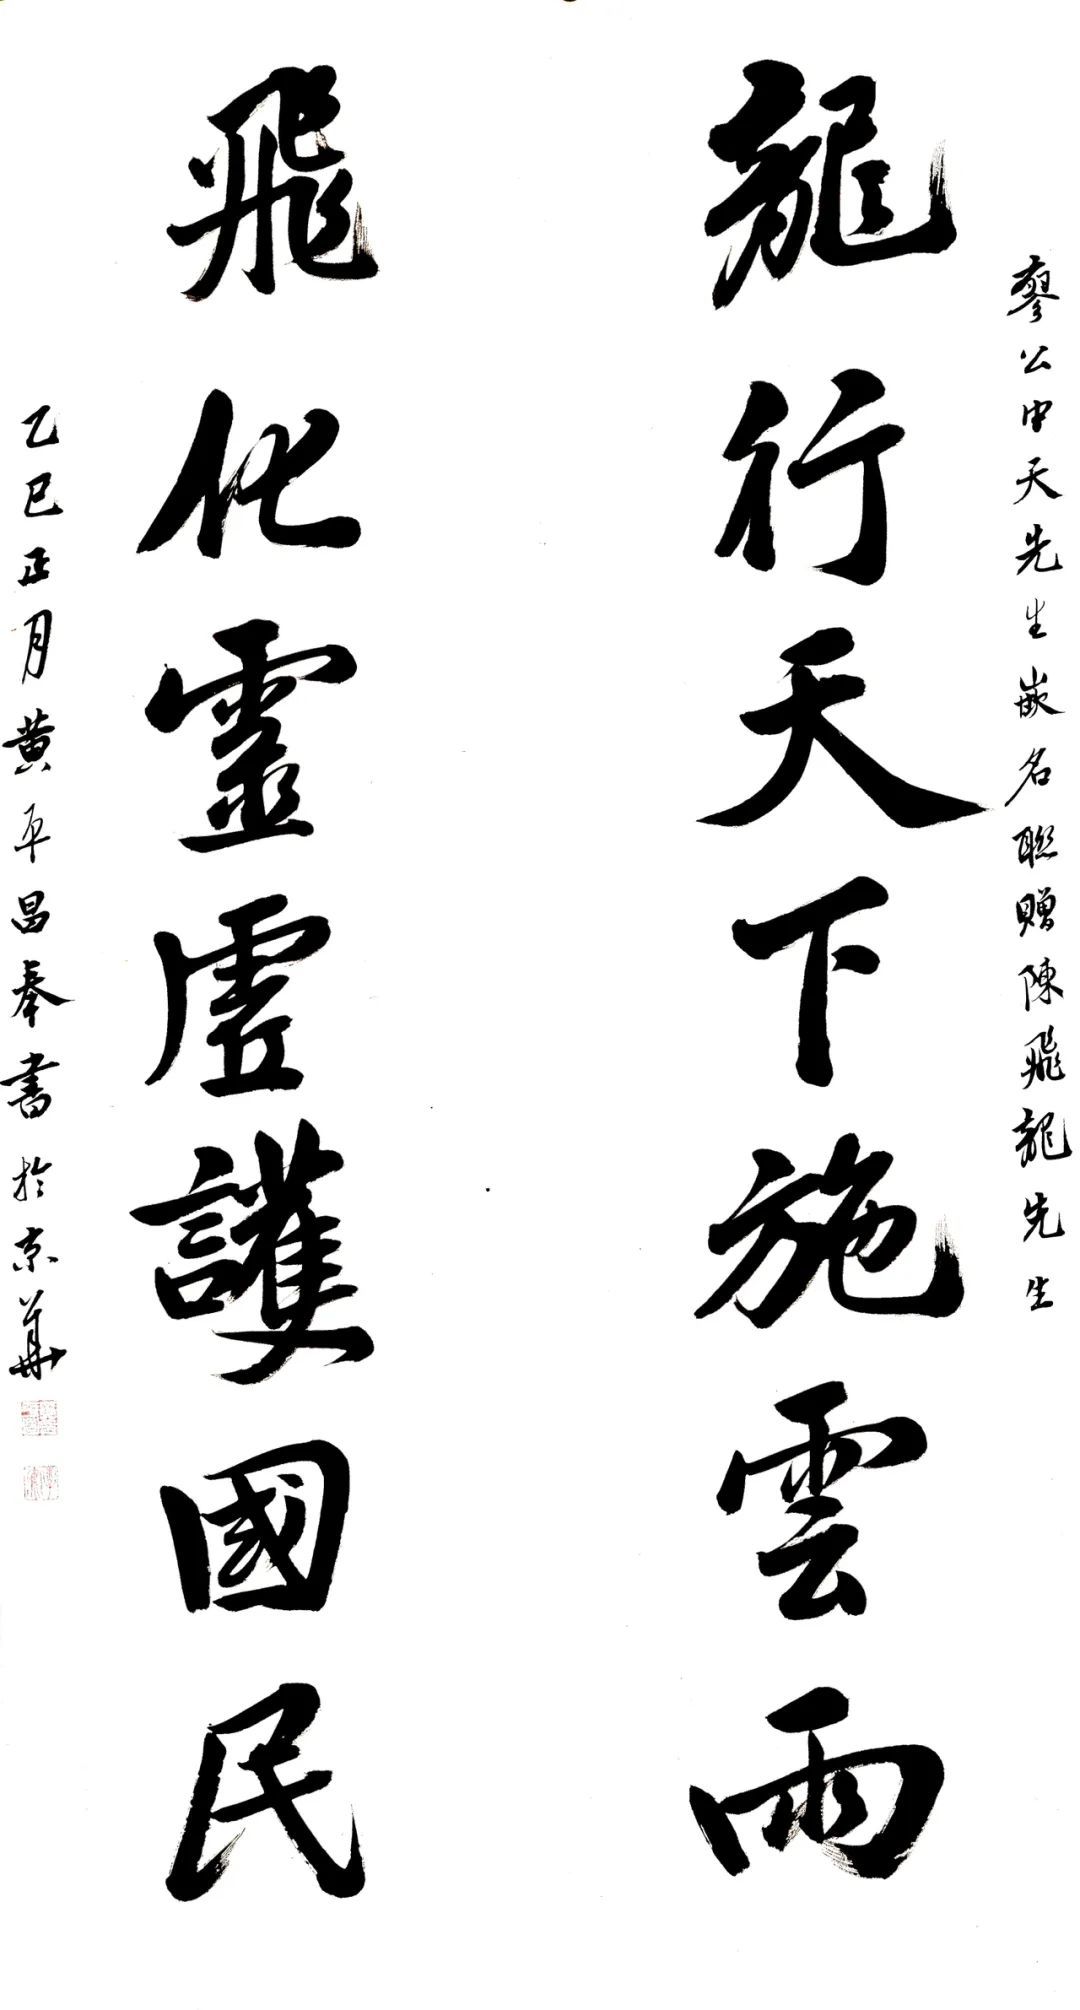 廖公中天先生嵌名聯贈陳飛龍先生
龍行天下施雲雨
飛化靈虛護國民
乙巳正月黄平昌奉書於京華